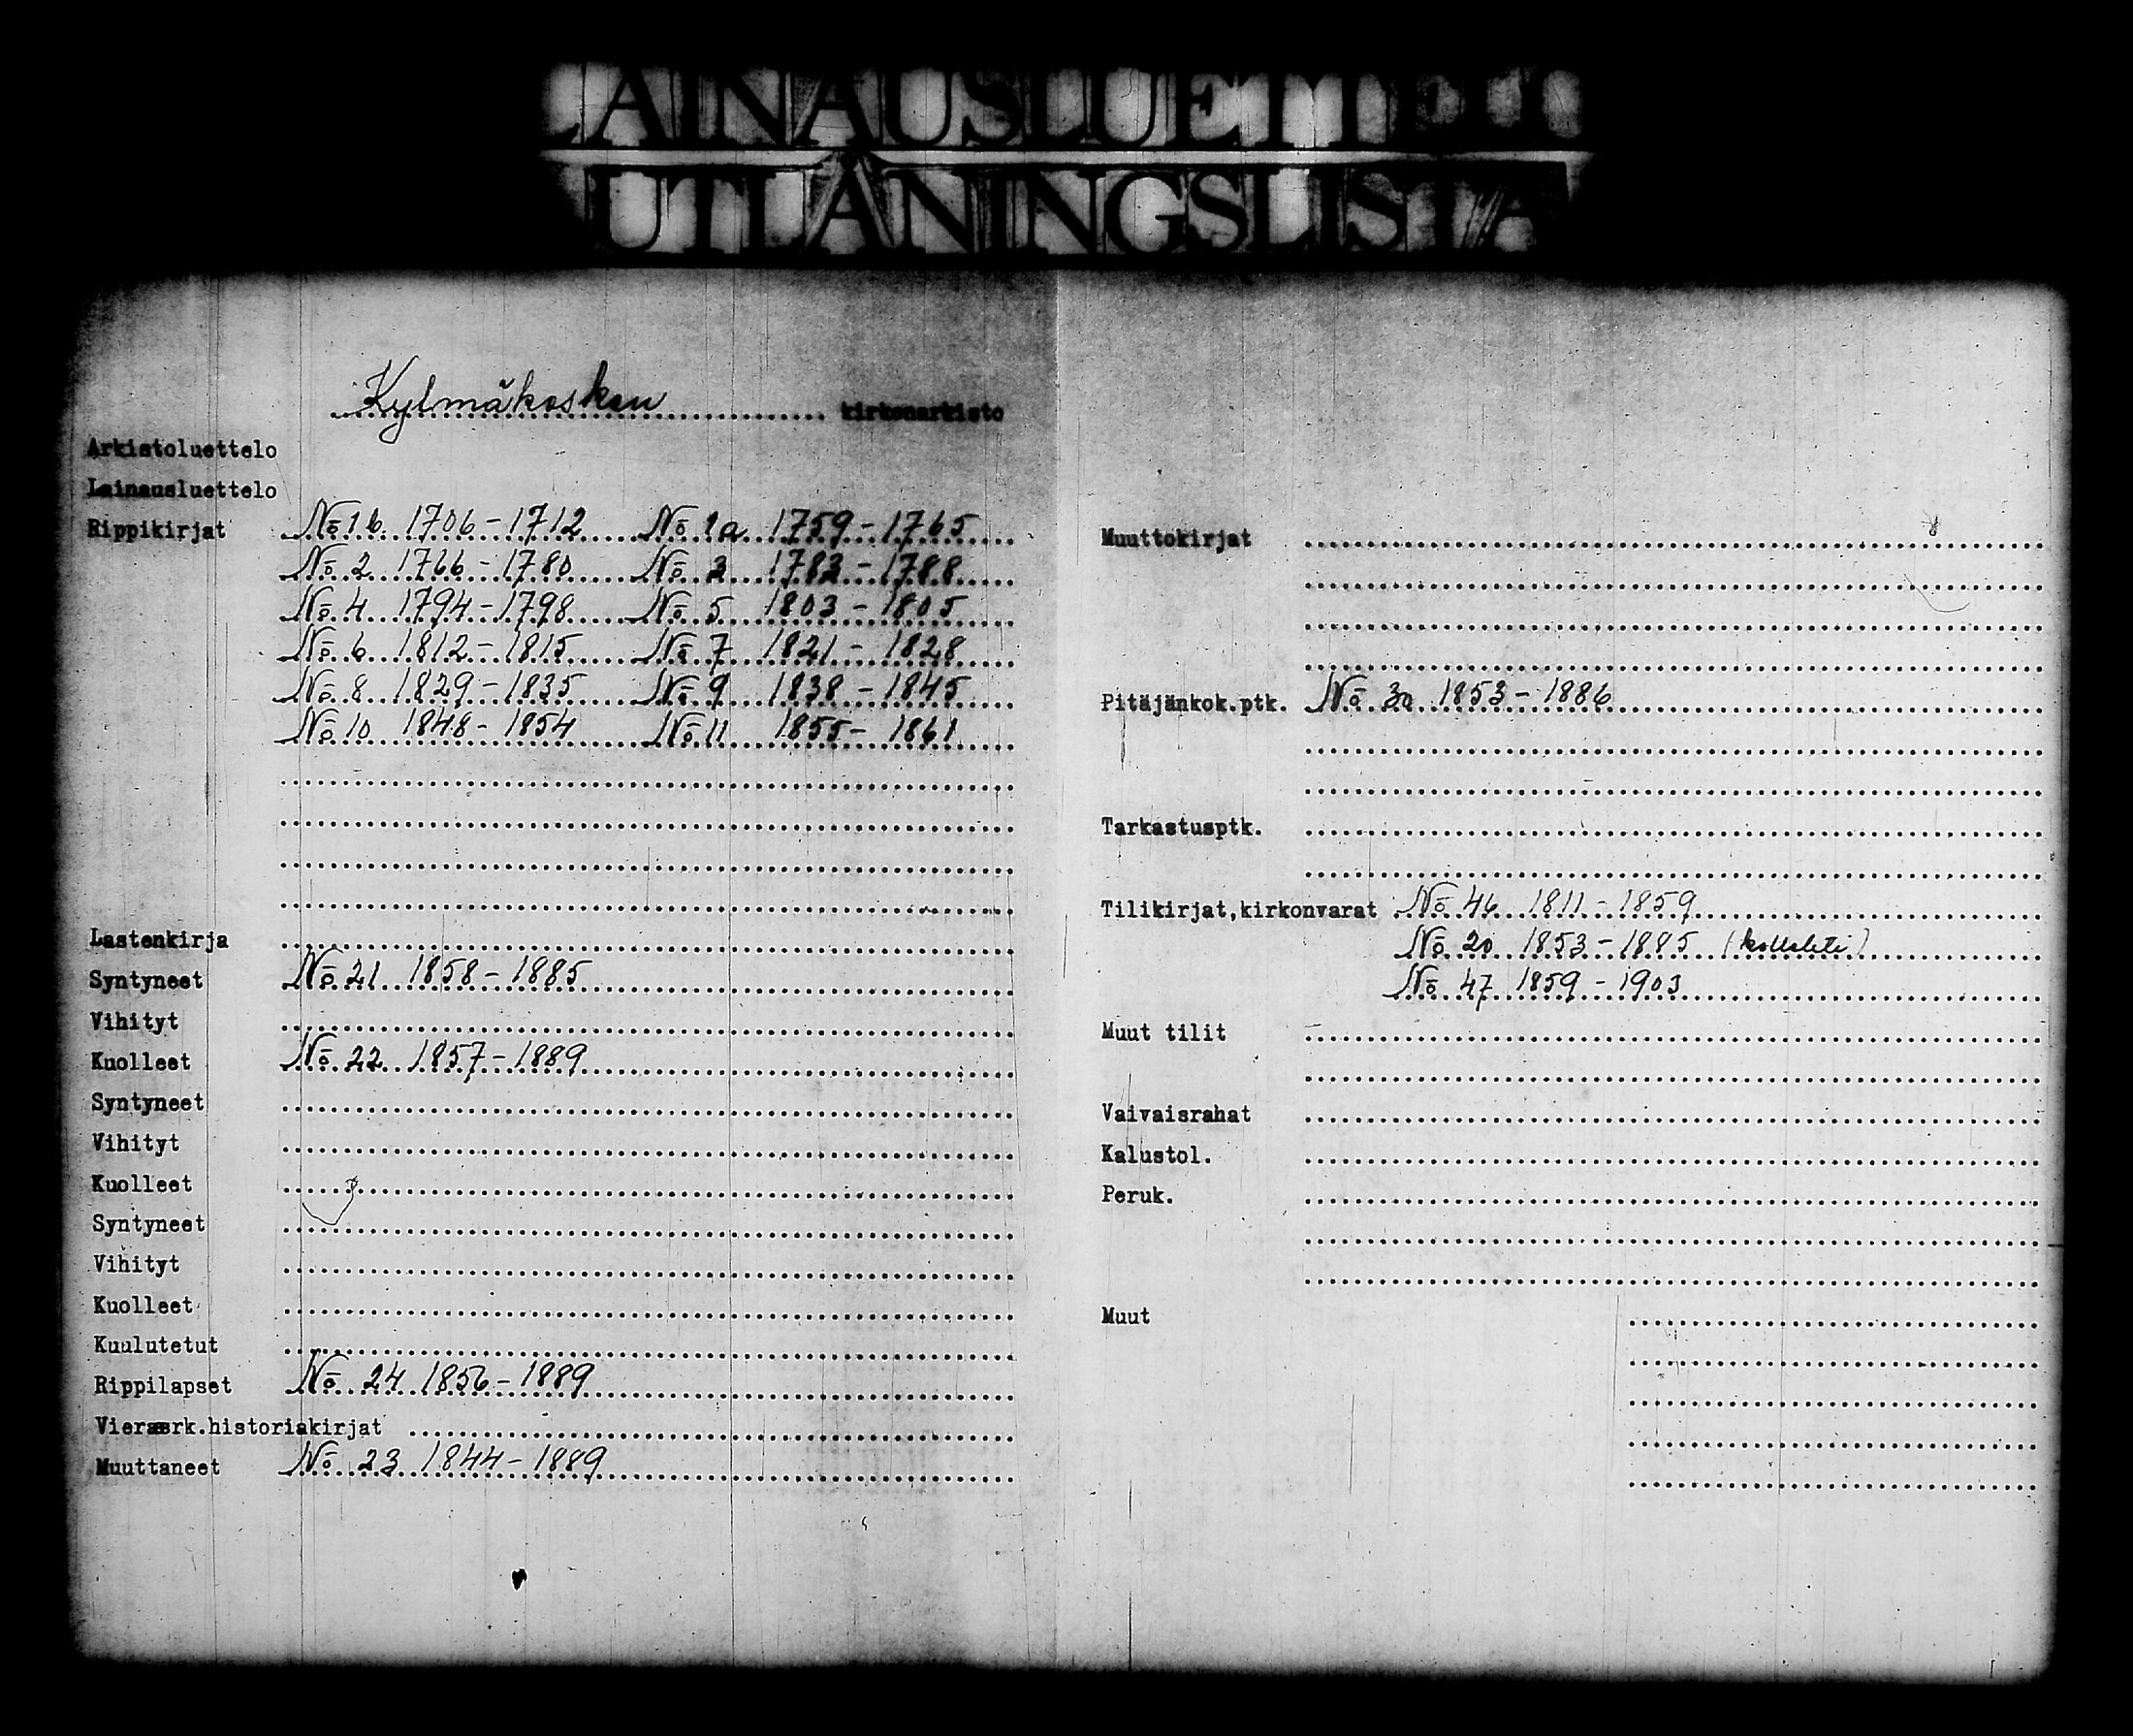 LAINAUSLUETTELO
UTLÅNINGSLISTA
Kylmäkosken kirkonarkisto
Arkistoluettelo
Lainausluettelo
Rippikirjat No 1b 1706-1712 No 1a 1759-1765
No 2 1766-1780 No 3 1783-1788
No 4 1794-1798 No 5 1803-1805
No 6 1812-1815 No 7 1821-1828
No 8 1829-1835 No 9 1838-1845
No 10 1848-1854 No 11 1855-1861
Lastenkirja
Syntyneet No 21 1858-1885
Vihityt
Kuolleet No 22 1857-1889
Syntyneet
Vihityt
Kuolleet
Syntyneet
Vihityt
Kuolleet
Kuulutetut
Rippilapset No 24 1856-1889
Vierassrk.historiakirjat
Muuttaneet No 23 1844-1889
Muuttokirjat
Pitäjänkok.ptk. No 30 1853-1886
Tarkastusptk.
Tilikirjat,kirkonvarat No 46 1811-1859
No 20 1853-1885 (kollehti)
No 47 1859-1903
Muut tilit
Vaivaisrahat
Kalustol.
Peruk.
Muut